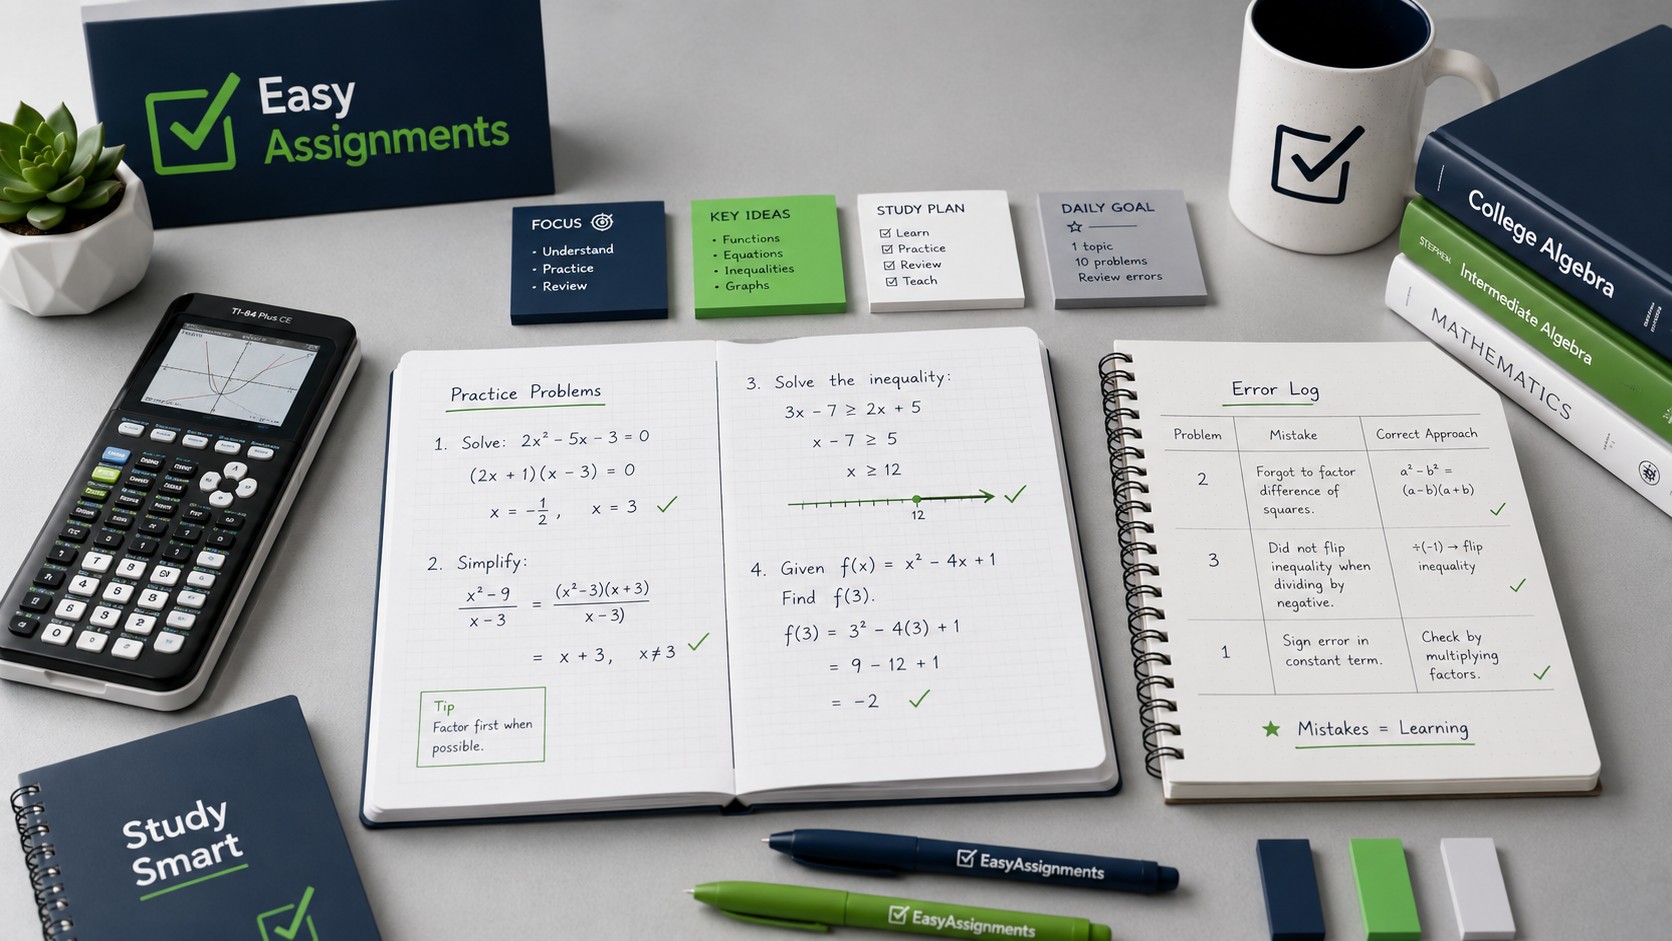 Easy
Assignments
FOCUS
• Understand
• Practice
• Review
KEY IDEAS
• Functions
• Equations
• Inequalities
• Graphs
STUDY PLAN
☑ Learn
☑ Practice
☑ Review
☑ Teach
DAILY GOAL
1 topic
10 problems
Review errors
College Algebra
STEPHEN
Intermediate Algebra
MATHEMATICS
TI-84 Plus CE
Practice Problems
1. Solve: 2x² − 5x − 3 = 0
(2x + 1)(x − 3) = 0
x = −1/2, x = 3 ✓
2. Simplify:
x² − 9 / x − 3 = (x² − 3)(x + 3) / x − 3)
= x + 3, x ≠ 3 ✓
Tip
Factor first when
possible.
3. Solve the inequality:
3x − 7 ≥ 2x + 5
x − 7 ≥ 5
x ≥ 12
12
✓
4. Given f(x) = x² − 4x + 1
Find f(3).
f(3) = 3² − 4(3) + 1
= 9 − 12 + 1
= −2 ✓
Error Log
Problem Mistake Correct Approach
2
Forgot to factor
difference of
squares.
a² − b² =
(a−b)(a+b)
✓
3
Did not flip
inequality when
dividing by
negative.
÷(−1) → flip
inequality
✓
1
Sign error in
constant term.
Check by
multiplying
factors.
✓
★ Mistakes = Learning
Study
Smart
EasyAssignments
EasyAssignments